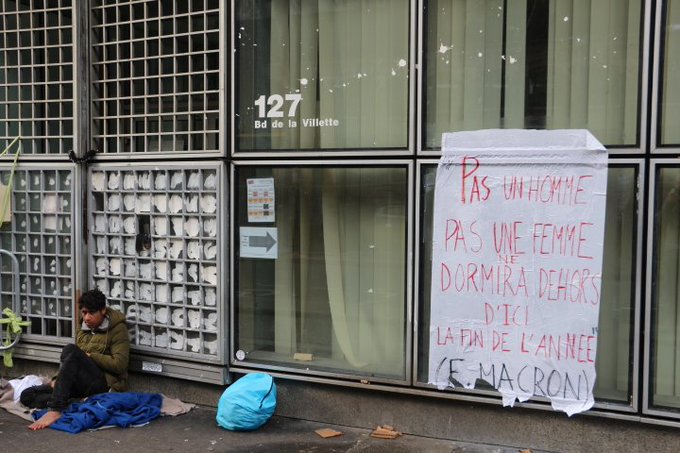 127
Bd de la Villette
"PAS UN HOMME
PAS UNE FEMME
NE
DORMIRA DEHORS
D'ICI
LA FIN DE L'ANNÉE"
(E-MACRON)